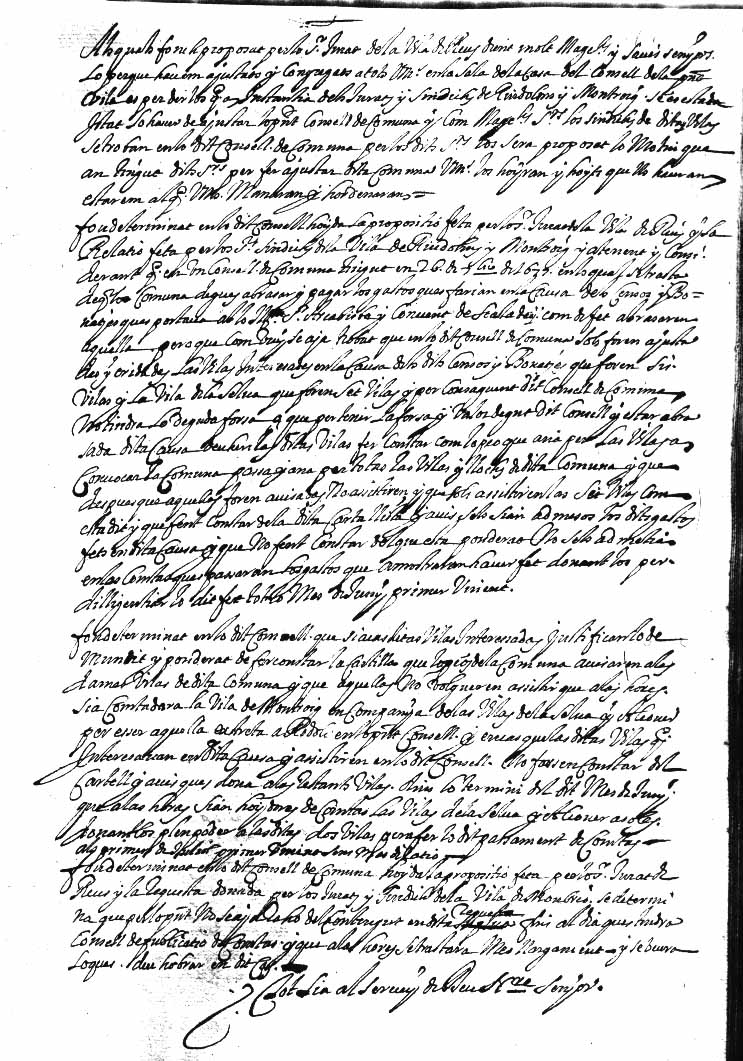 Als quals fonch proposat per lo Sr. Jurat de la Vila de Reus dient molt Magchs. y savis senyors.
Lo perque havem ajustats y Congregats a tots Vms. en la Sala de la Casa del Consell de la pnt
Vila es per dir los q a Instantia dels Jurats y Sindichs de Riudoms y Montroig. Se es estada
Instat se haver de ajustar lo pnt Consell de Comuna y Com Magchs Srs los sindichs de dites Vilas
se troban en lo dit Consell. de Comuna per los dits Srs los sera proposat lo Motiu que
an tingut dits Srs per fer ajustar dita Comuna Vms. los hoyran y hoyts que los hauran
estarem al q. Vms. Manaran y hordenaran
fou determinat en lo dit Consell hoyda la propositio feta per lo Sr. Jurat de la Vila de Reus y la
Relatio feta per los Srs. Sindichs de la Vila de Riudoms y Montroig y atenent y Consi.
derant q. en un Consell. de Comuna tingut en 26. de en lo qual se tracta
de q. la Comuna degues abrasar y pagar los gastos ques farian en la Causa dels Censos y Bo=
natjes ques portava ab lo Sr. y Convent de Scaladey com de fet abrasaren
aquella. pero que com vuy se aja trobat que en lo dit Consell de Comuna sols foren ajusta
des y cridades las Vilas Interesades en la Causa dels dits Censos y Bonatjes que foren sis
Vilas y la Vila de la Selva que foren set Vilas y per Conseguent dit Consell de Comuna
No tindra lo deguda forsa q que per tenir la forsa y Valor degut dit Consell y estar abra
sada dita Causa deuhen las ditas Vilas fer Constar com lo peo que ana per las Vilas a
Convocar la Comuna passa y ana per totas las Vilas y llochs de dita Comuna y que
despues que aquelles foren avisades No asistiren y que sols assistiren las set Vilas Com
esta dit y que fent Constar de la dita Carta y avis selos sian admesos los dits gastos
fets en dita Causa y que No fent Constar del que esta ponderat No selo admetia
en las Comtas ques passaran los gastos que amostraran haver fet donant los per
dilligentiar lo dit fet tot lo Mes de Juny primer Vinent.
fou determinat en lo dit Consell. que si acas ditas Vilas Interesadas Justifican lo de
Mundit y ponderat de fer constar la que lo peo de la Comuna avisaren a las
de mes Vilas de dita Comuna y que aquellas No volgueren assistir que a las hores
sia Comtadora la Vila de Montroig en Companyia de las Vilas de la Selva y Alcover
per eser aquella extreta a Rodoli en lo pnt Consell. y en cas que las ditas Vilas q.
Interesaran en dita Causa y asistiren en lo dit Consell. No fassen Constar del
Cartell y avis ques dona a las Restants Vilas. dins lo termini del dit Mes de Juny.
que a las horas sian hoydores de Comtas las Vilas de la Selva y Alcover a soles.
donantlos plen poder a las ditas dos Vilas pera fer lo dit passament de Comtas
als primers de Juliol primer Vinent sens Mes dilatio
fou determinat en lo dit Consell de Comuna hoyda la propositio feta per lo Sr. Jurat de
Reus y la Requesta donada per los Jurats y Sindich de la Vila de Montbrio, se determi
na que per lo pnt No sia del Contengut en dita Requesta fins al dia ques tindra
Consell de publicatio de Comtas y que a las hores se tractara Mes llargament y se veura
lo ques deu hobrar en dit Cas.
Tot sia al servey de Deu Nre Senyor.